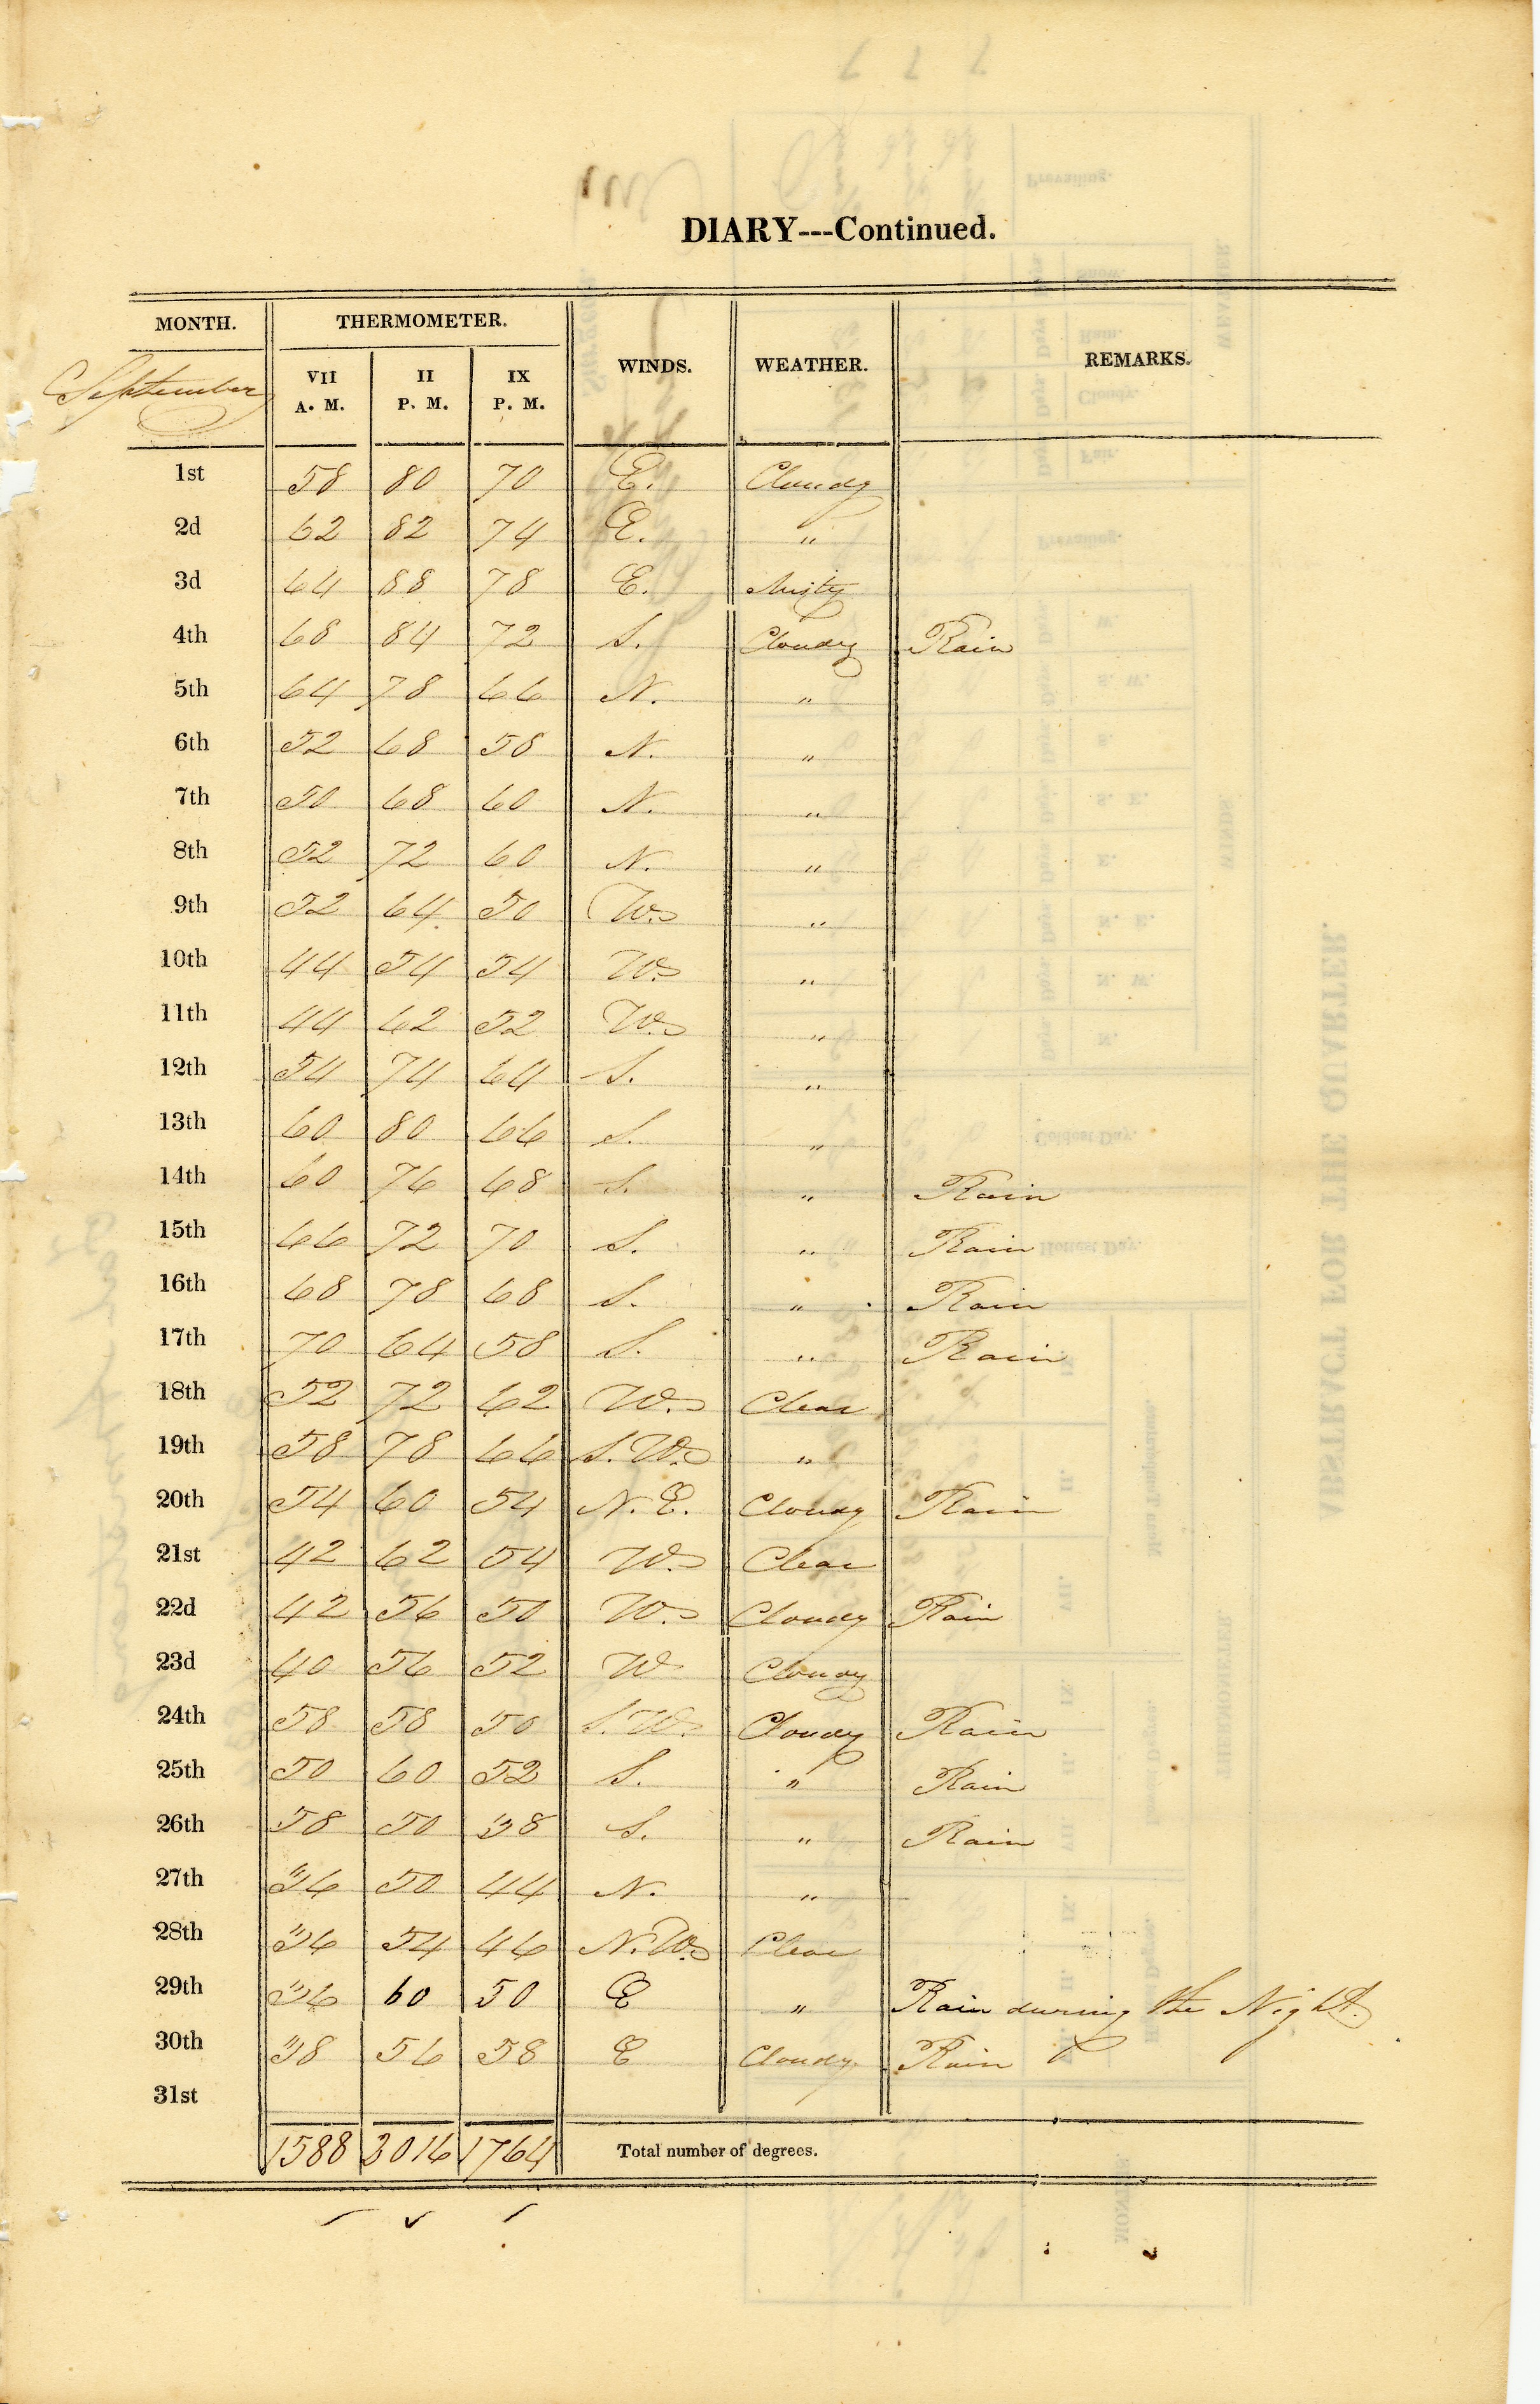 DIARY---Continued.
MONTH. THERMOMETER. WINDS. WEATHER. REMARKS.
September VII A. M. II P. M. IX P. M.
1st 58 80 70 E. Cloudy
2d 62 82 74 E. "
3d 64 88 78 E. Misty
4th 68 84 72 S. Cloudy Rain
5th 64 78 66 N. "
6th 52 68 58 N. "
7th 50 68 60 N. "
8th 52 72 60 N. "
9th 52 64 50 W. "
10th 44 54 54 W. "
11th 44 62 52 W. "
12th 54 74 64 S. "
13th 60 80 66 S. "
14th 60 76 68 S. " Rain
15th 66 72 70 S. " Rain
16th 68 78 68 S. " Rain
17th 70 64 58 S. " Rain
18th 52 72 62 W. Clear
19th 58 78 66 S.W. "
20th 54 60 54 N.E. Cloudy Rain
21st 42 62 54 W. Clear
22d 42 56 50 W. Cloudy Rain
23d 40 56 52 W Cloudy
24th 58 58 50 S.W. Cloudy Rain
25th 50 60 52 S. " Rain
26th 58 50 38 S. " Rain
27th 36 50 44 N. "
28th 36 54 46 N.W. Clear
29th 36 60 50 E " Rain during the Night.
30th 38 56 58 E Cloudy Rain
31st
1588 2016 1764 Total number of degrees.